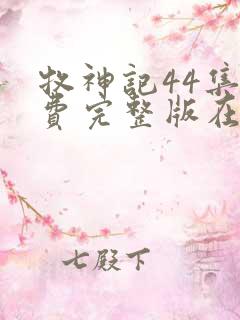 牧神记44集
费完整版在
七殿下